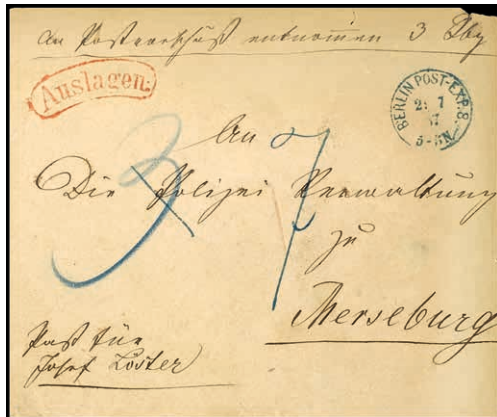 An Postvorschuß entnommen 3 Sgr
Auslagen.
BERLIN POST-EXP. 8.
7
5-6N
An
3 7
Die Polizei Verwaltung
zu
Merseburg
Paß für
Josef Löster